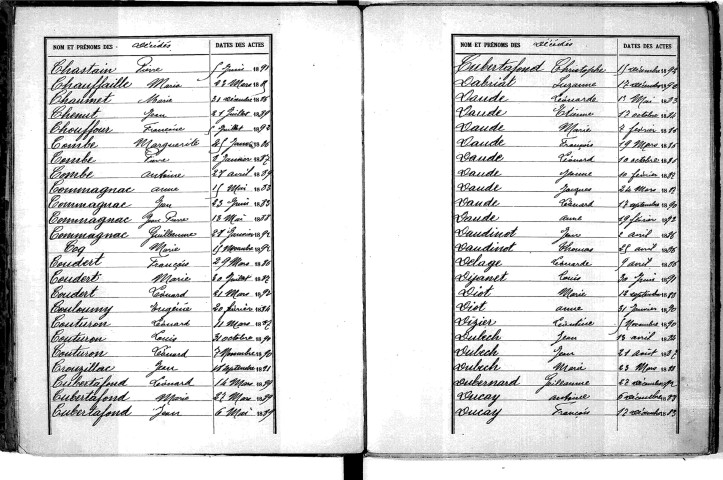 NOM ET PRÉNOMS DES Décédés DATES DES ACTES
Chastain Pierre 5 Juin 1891
Chauffaille Marie 23 Mars 18
Chaumet Marie 31 décembre 18
Chenut Jean 21 Juillet 1889
Chouffour Françoise Juillet 1892
Combe Marguerite Janvier 1886
Combe Pierre 2 Janvier 1887
Combe Antoine 27 avril 1889
Commagnac anne 15 Mai 1883
Commagnac Jean 23 Juin 1883
Commagnac Jean Pierre 13 Mai 1888
Commagnac Guillaume 28 Janvier 1892
Coq Marie 15 Novembre 1892
Coudert François 29 Mars 1886
Coudert Marie 20 Juillet 18
Coudert Léonard 21 Mars 1892
Couloumy Eugénie 20 février 1884
Couturon Léonard 11 Mars 1887
Couturon Louis 31 octobre 1890
Couturon Léonard 7 Novembre 1890
Crouzillac Jean 18 septembre 1891
Cubertafond Léonard 14 Mars 1889
Cubertafond Marie 27 Mars 1889
Cubertafond Jean 6 Mai 1889
NOM ET PRÉNOMS DES Décédés DATES DES ACTES
Cubertafond Christophe 15 décembre 1892
Dabriat Suzanne 17 décembre 1890
Daude Léonarde 13 Mai 1883
Daude Etienne 17 octobre 1884
Daude Marie 7 février 1886
Daude François 19 Mars 1886
Daude Léonard 10 octobre 1881
Daude Jeanne 10 février 1882
Daude Jacques 24 Mars 18
Daude Léonard 17 septembre 1890
Daude anne 29 février 1892
Daudinot Jean 2 avril 1886
Daudinot Thomas 25 avril 1886
Delage Léonarde 9 avril 1886
Djanet Louis 30 Juin 1891
Diot Marie 12 septembre 1883
Diot anne 31 Janvier 1890
Dizier Léontine 7 Novembre 1890
Dubech Jean 13 avril 1884
Dubech Jean 21 août 1887
Dubech Marie 23 Mars 1888
Dubernard Guillaume 27 décembre 1892
Ducay antoine 6 décembre 1883
Ducay François 17 décembre 1883